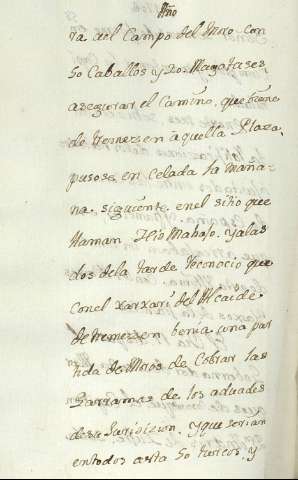 Año
ra del Campo del Moro con
50 Caballos y 20. Magatases,
asegurar el camino, que viene
de tremezen a quella Plaza,
pusose en Celada la maña-
na. siguiente. en el sitio que
llaman, Hio Mahajo. y alas
dos dela tarde reconocio que
con el xarxari del Alcaide
detremezen benia, una par
tida de Moros de Cobrar las
Garramas de los aduades
de su Jurisizion, y que serian
entodos asta 50 turcos, y